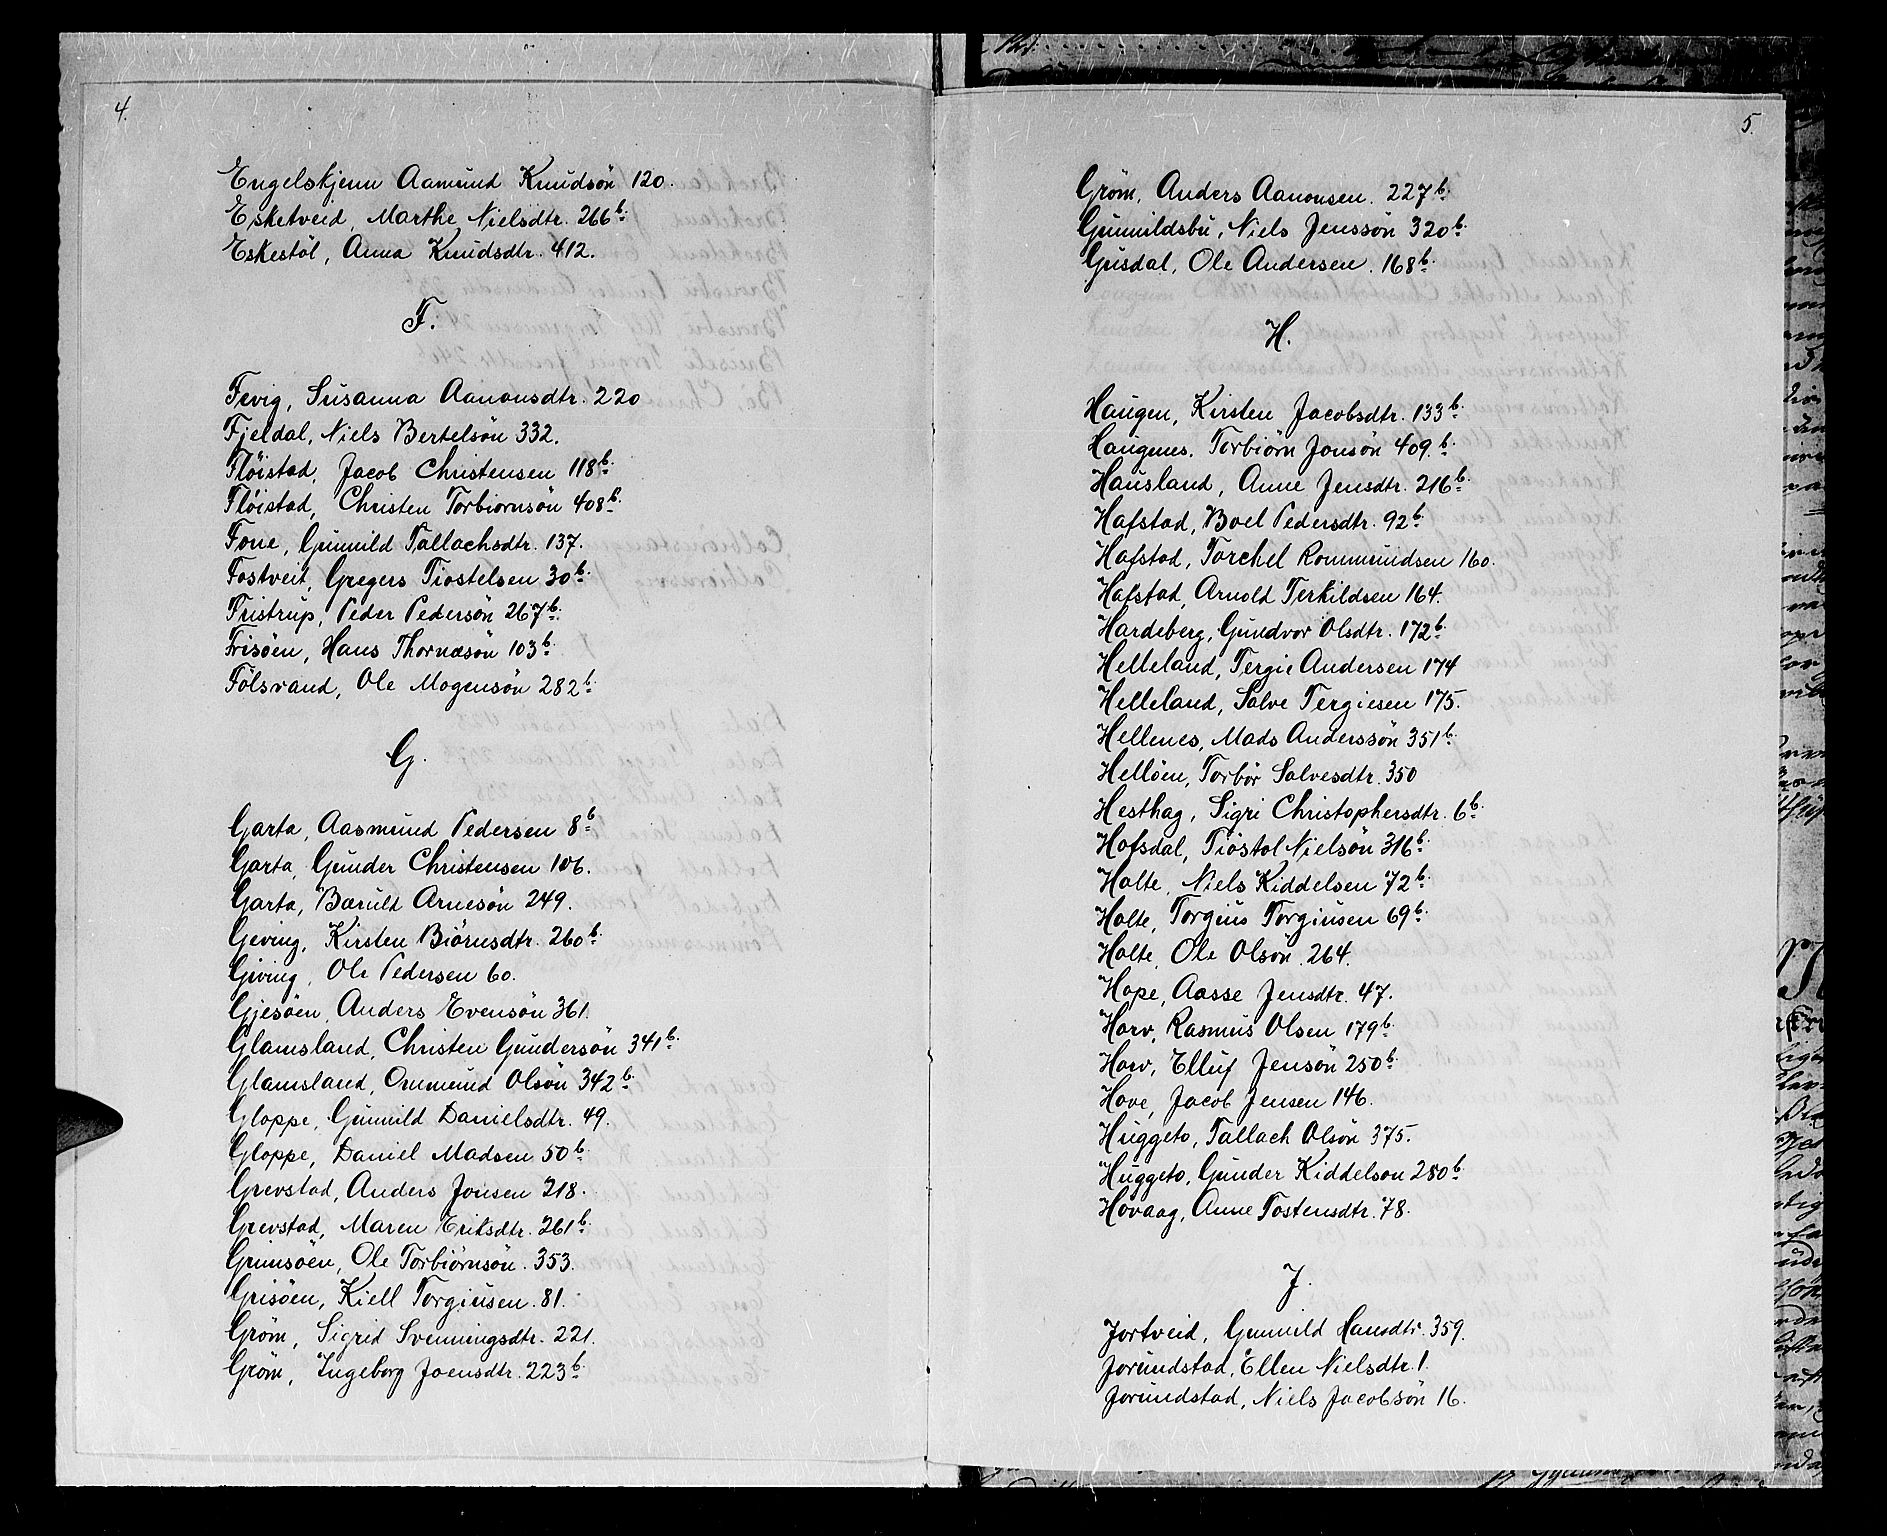 4.
Engelskjenn Aamund Knudsön 120.
Esketveid, Marthe Nielsdtr. 266b.
Eskestöl, Anna Knudsdtr. 412.
F.
Fevig, Susanna Aanonsdtr. 220
Fjeldal, Niels Bertelsön 332.
Flöistad, Jacob Christensen 118b.
Flöistad, Christen Torbiornsön 408b.
Fone, Gunnild Tallachsdtr. 137.
Fostveit, Gregers Tiostelsen 30b.
Fristrup, Peder Pedersön 267b.
Frisöen, Hans Thornæsön 103b.
Fölsvand, Ole Mogensön 282b.
G.
Garta, Aasmund Pedersen 8b.
Garta, Gunder Christensen 106.
Garta, Baruld Arnesön 249.
Geving, Kirsten Biörnsdtr. 260b.
Giving, Ole Pedersen 60.
Gjesöen, Anders Evensön 361.
Glamsland, Christen Gundersön 341b.
Glamsland, Ommund Olsön 342b.
Gloppe, Gunnild Danielsdtr. 49.
Gloppe, Daniel Madsen 50b.
Grevstad, Anders Jonsen 218.
Grevstad, Maren Eriksdtr. 261b.
Grimsöen, Ole Torbiörnsön. 353.
Grisöen, Kiell Torgiusen. 81.
Gröm, Sigrid Svenningsdtr. 221.
Gröm, Ingeborg Joensdtr. 223b.
5.
Gröm, Anders Aanonsen. 227b.
Gunnildsbu, Niels Jenssön 320b.
Gusdal, Ole Andersen. 168b.
H.
Haugen, Kirsten Jacobsdtr. 133b.
Haugenes. Torbiörn Jonsön 409.b.
Hausland, Anne Jensdtr. 216b.
Hafstad, Boel Pedersdtr. 92b.
Hafstad, Torchel Rommundsen 160.
Hafstad, Arnold Terkildsen 164.
Hardeberg, Gundvor Olsdtr. 172b.
Helleland, Tergie Andersen 174
Helleland, Salve Tergiesen 175.
Hellenes, Mads Anderssön 351b.
Hellöen, Torbör Salvesdtr. 350
Hesthag, Sigri Christophersdtr. 6b.
Hofsdal, Tiöstol Nielsön 316b.
Holte, Niels Kiddelsen 72b.
Holte, Torgius Torgiusen 69b.
Holte, Ole Olsön 264.
Hope, Aasse Jensdtr. 47.
Horv, Rasmus Olsen 179b.
Horv, Elluf Jensön 250b.
Hove, Jacob Jensen 146.
Huggeto, Tallach Olsön 375.
Huggeto, Gunder Kiddelson 280b.
Hövaag, Anne Tostensdtr. 78.
J.
Jortveid, Gunnild Hansdtr. 359.
Jorundstad, Ellen Nielsdtr. 1.
Jorundstad, Niels Jacobsön 16.